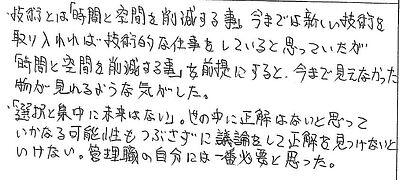 技術とは「時間と空間を削減する事」。今までは新しい技術を
取り入れれば技術的な仕事をしていると思っていたが
「時間と空間を削減する事」を前提にすると、今まで見えなかった
物が見れるような気がした。
・「選択と集中に未来はない」。世の中に正解はないと思って
いかなる可能性もつぶさずに議論をして正解を見つけないと
いけない。管理職の自分には一番必要と思った。